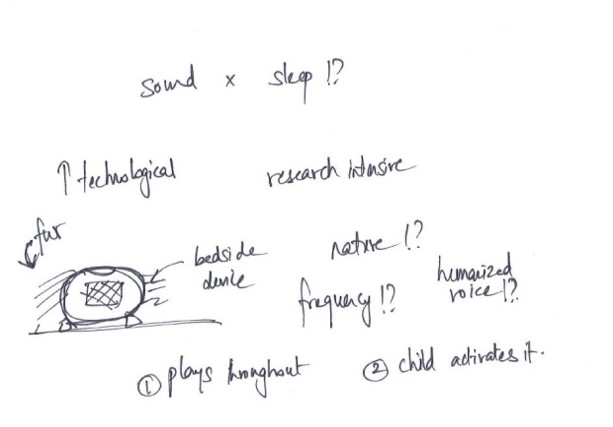 sound x sleep !?
↑ technological
research intensive
fur
bedside
device
nature !?
frequency !?
humanized
voice !?
① plays throughout
② child activates it.